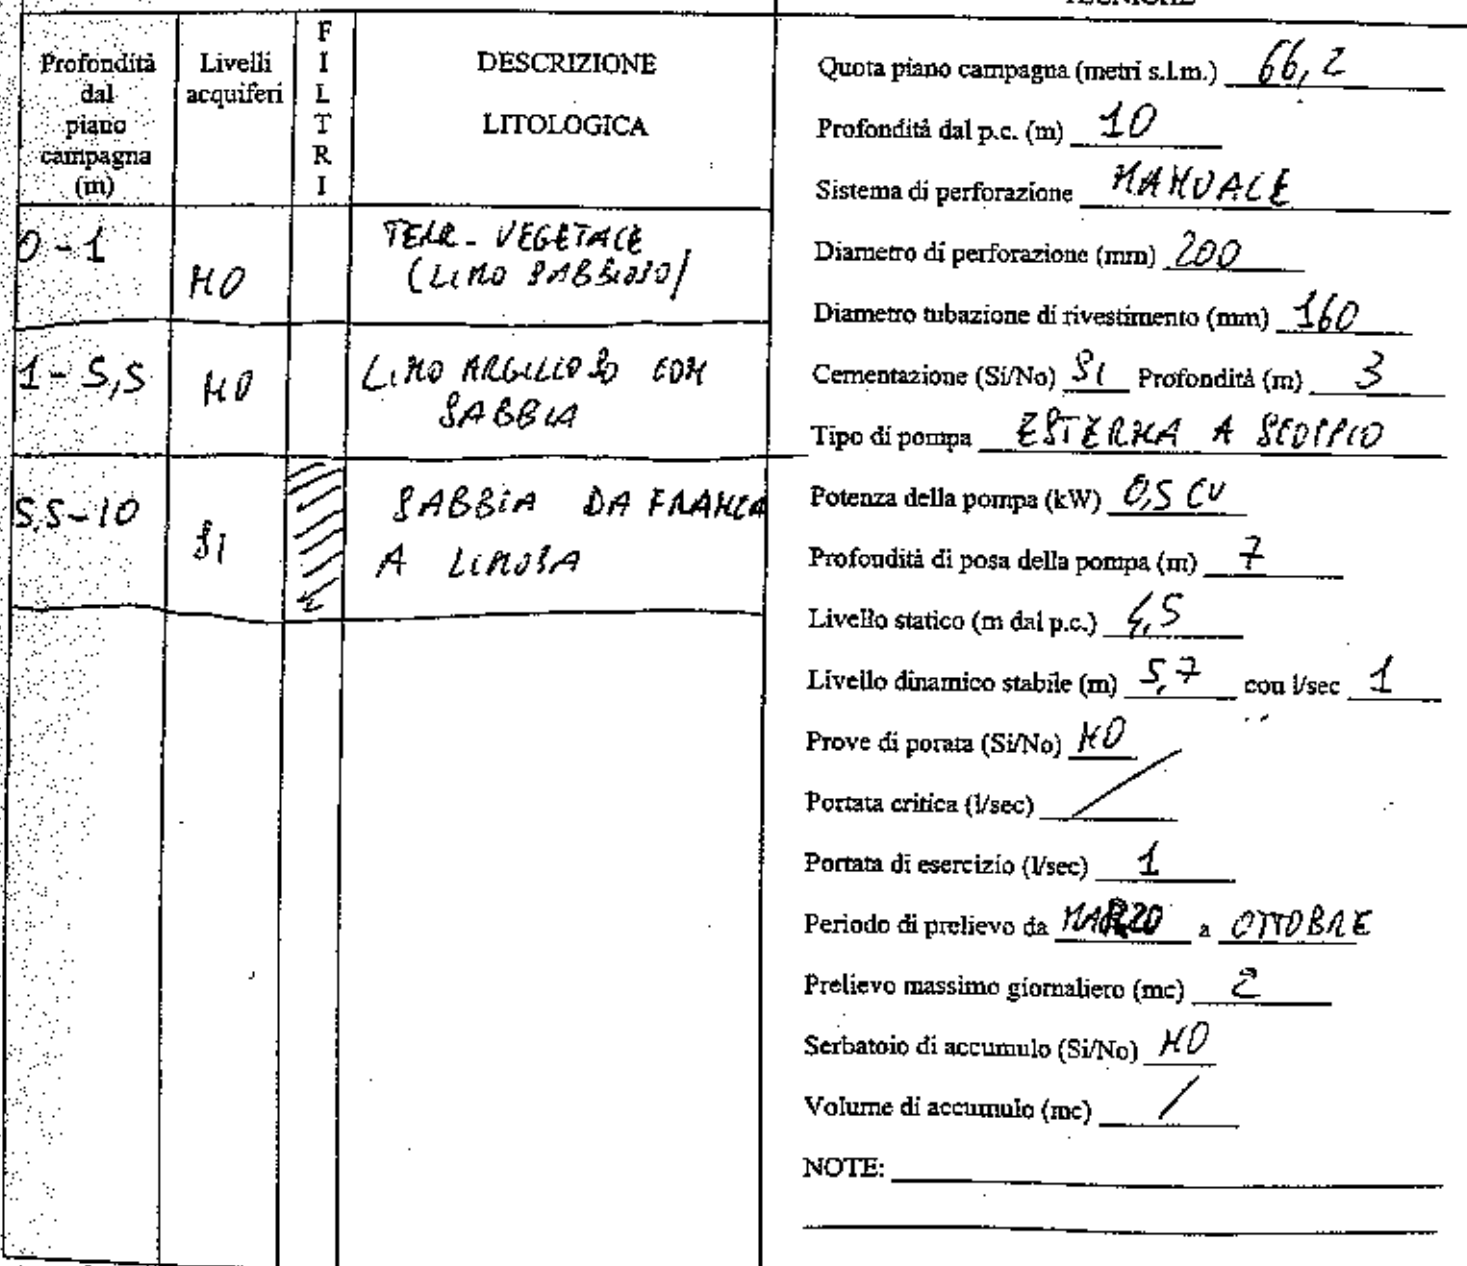 TECNICHE
Profondità
dal
piano
campagna
(m)
Livelli
acquiferi
F
I
L
T
R
I
DESCRIZIONE
LITOLOGICA
0-1
NO
TERR. VEGETALE
(LIMO SABBIOSO)
1-5,5
NO
LIMO ARGILLOSO CON
SABBIA
5,5-10
SI
SABBIA DA FRANCA
A LIMOSA
Quota piano campagna (metri s.l.m.) 66,2
Profondità dal p.c. (m) 10
Sistema di perforazione MANUALE
Diametro di perforazione (mm) 200
Diametro tubazione di rivestimento (mm) 160
Cementazione (Si/No) SI Profondità (m) 3
Tipo di pompa ESTERNA A SCOPPIO
Potenza della pompa (kW) 0,5 CV
Profondità di posa della pompa (m) 7
Livello statico (m dal p.c.) 4,5
Livello dinamico stabile (m) 5,7 con l/sec 1
Prove di porata (Si/No) NO
Portata critica (l/sec) /
Portata di esercizio (l/sec) 1
Periodo di prelievo da MARZO a OTTOBRE
Prelievo massimo giornaliero (mc) 2
Serbatoio di accumulo (Si/No) NO
Volume di accumulo (mc) /
NOTE: